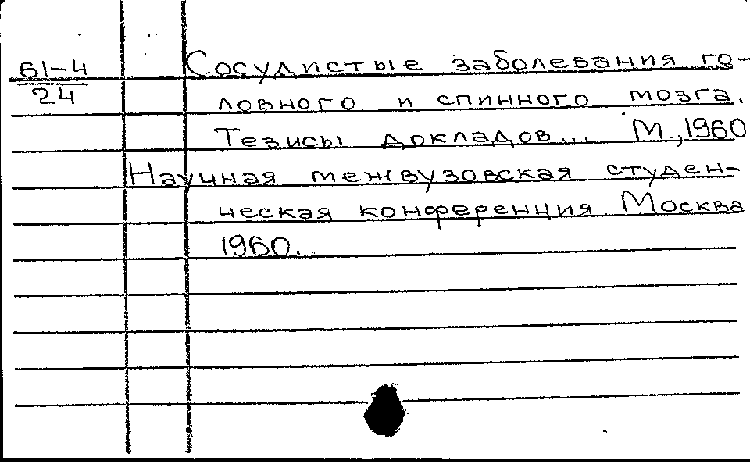 61-4
24
Сосудистые заболевания го-
ловного и спинного мозга.
Тезисы докладов... М., 1960
Научная межвузовская студен-
ческая конференция Москва
1960.